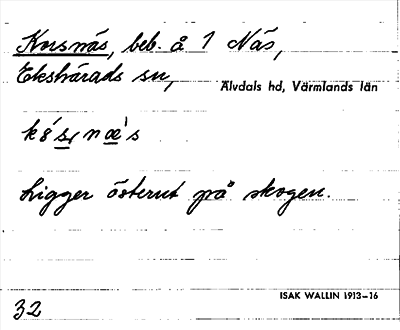 Korsnäs, beb. å 1 Näs,
Ekshärads sn,
Älvdals hd, Värmlands län
Ligger österut på skogen.
ISAK WALLIN 1913–16
32